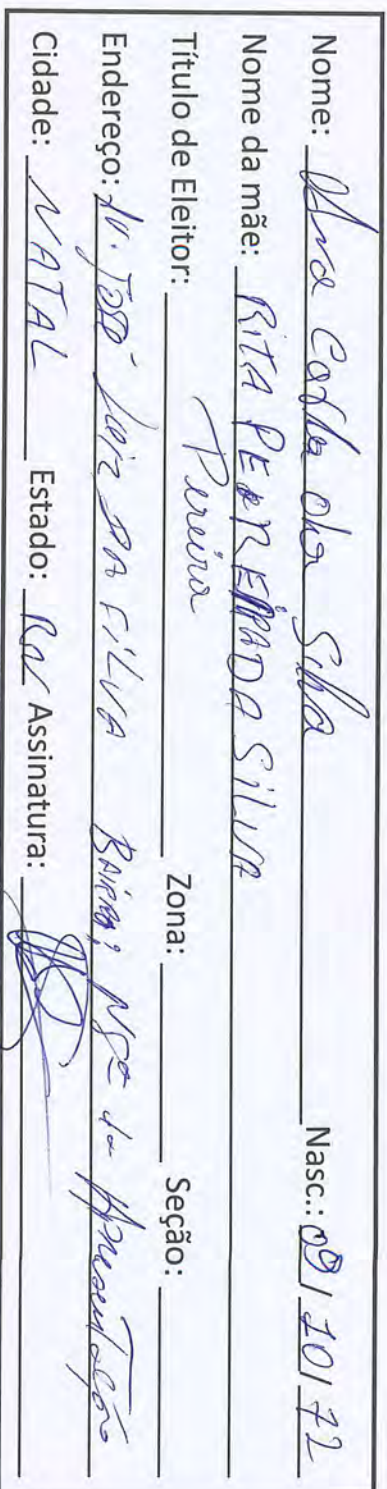 Nome: Ana Carla da Silva Nasc.: 09/10/72
Nome da mãe: RITA PEREIRA DA SILVA
Pereira
Título de Eleitor: Zona: Seção:
Endereço: AV. José Luiz DA SILVA Bairro: NSª da Apresentação
Cidade: NATAL Estado: RN Assinatura: